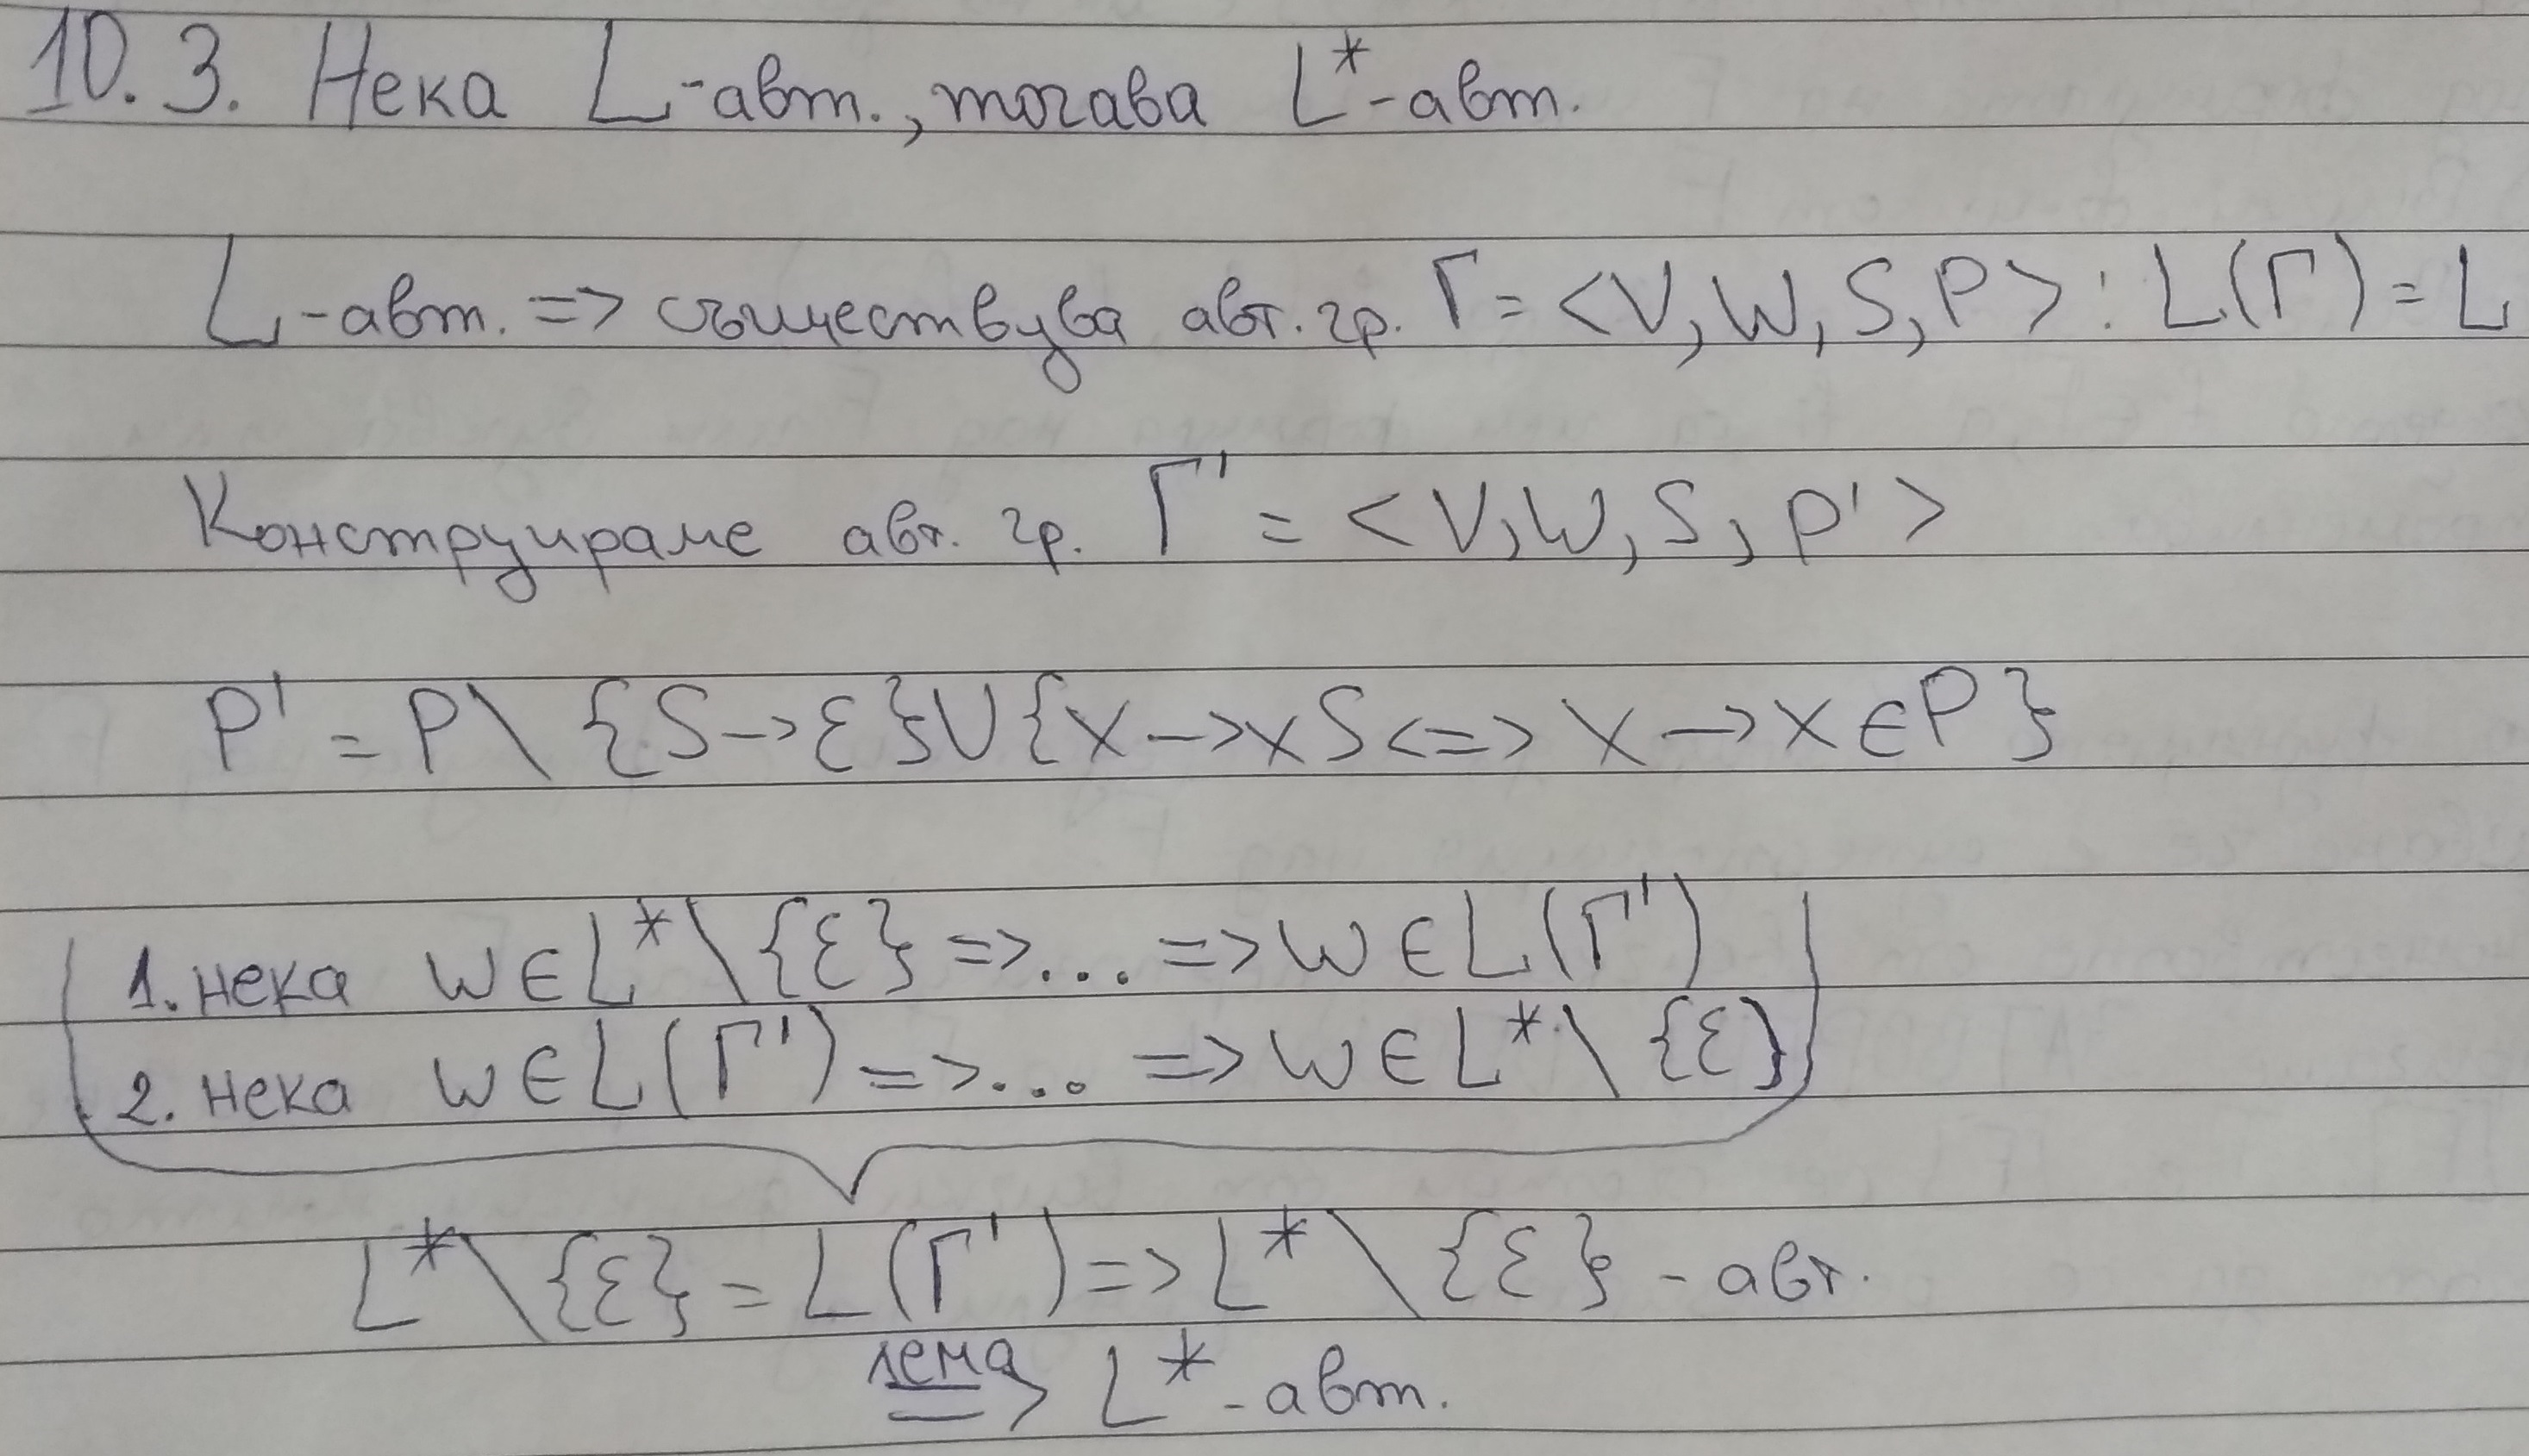 10.3. Нека L-авт., тогава L*-авт.
L-авт. => съществува авт. гр. Г = <V, W, S, P> : L(Г) = L
Конструираме авт. гр. Г' = <V, W, S, P'>
P' = P \ {S -> ε} U {X -> xS <=> X -> x ∈ P}
1. нека w ∈ L* \ {ε} => ... => w ∈ L(Г')
2. нека w ∈ L(Г') => ... => w ∈ L* \ {ε}
L* \ {ε} = L(Г') => L* \ {ε} - авт.
лема
=> L* - авт.